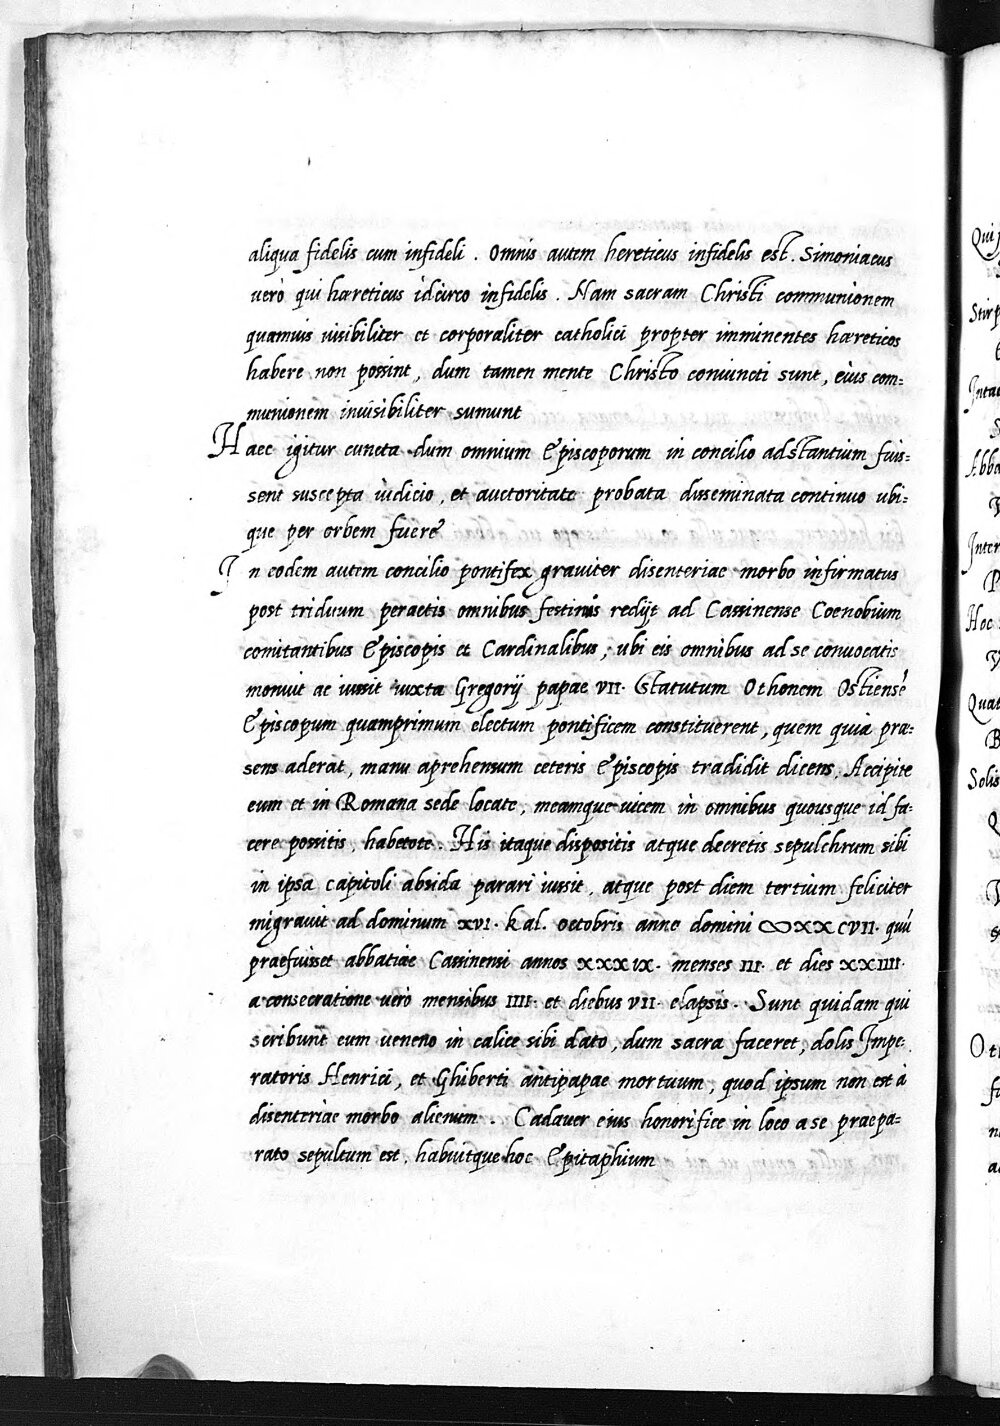 aliqua fidelis cum infideli . Omnis autem hereticus infidelis est. Simoniacus
verò qui haereticus idcirco infidelis . Nam sacram Christi communionem
quamuis uisibiliter et corporaliter catholici propter imminentes haereticos
habere non possint, dum tamen mente Christo coniuncti sunt, eius com=
munionem inuisibiliter sumunt
Haec igitur cuncta dum omnium Episcoporum in concilio adstantium fuis=
sent suscepta iudicio, et auctoritate probata disseminata continuo ubi=
que per orbem fuere
In eodem autem concilio pontifex grauiter disenteriae morbo infirmatus
post triduum peractis omnibus festinus redijt ad Cassinense Coenobium
comitantibus Episcopis et Cardinalibus, ubi eis omnibus ad se conuocatis
monuit ac iussit iuxta Gregorij papae VII. Statutum Othonem Ostiensē
Episcopum quamprimum electum pontificem constituerent, quem quia prae=
sens aderat, manu aprehensum ceteris Episcopis tradidit dicens, Accipite
eum et in Romana sede locate, meamque uicem in omnibus quousque id fa=
cere possitis, habetote. His itaque dispositis atque decretis sepulchrum sibi
in ipsa capitoli absida parari iussit, atque post diem tertium feliciter
migrauit ad dominum XVI. Kal. octobris anno domini ∞XXCVII. quū
praefuisset abbatiae Cassinensi annos XXXIX. menses III. et dies XXIIII.
a consecratione uerò mensibus IIII. et diebus VII. elapsis. Sunt quidam qui
scribunt eum ueneno in calice sibi dato, dum sacra faceret, dolis Impe=
ratoris Henrici, et Ghiberti antipapae mortuum, quod ipsum non est à
disenteriae morbo alienum . Cadauer eius honorifice in loco a se praepa=
rato sepultum est, habuitque hoc Epitaphium